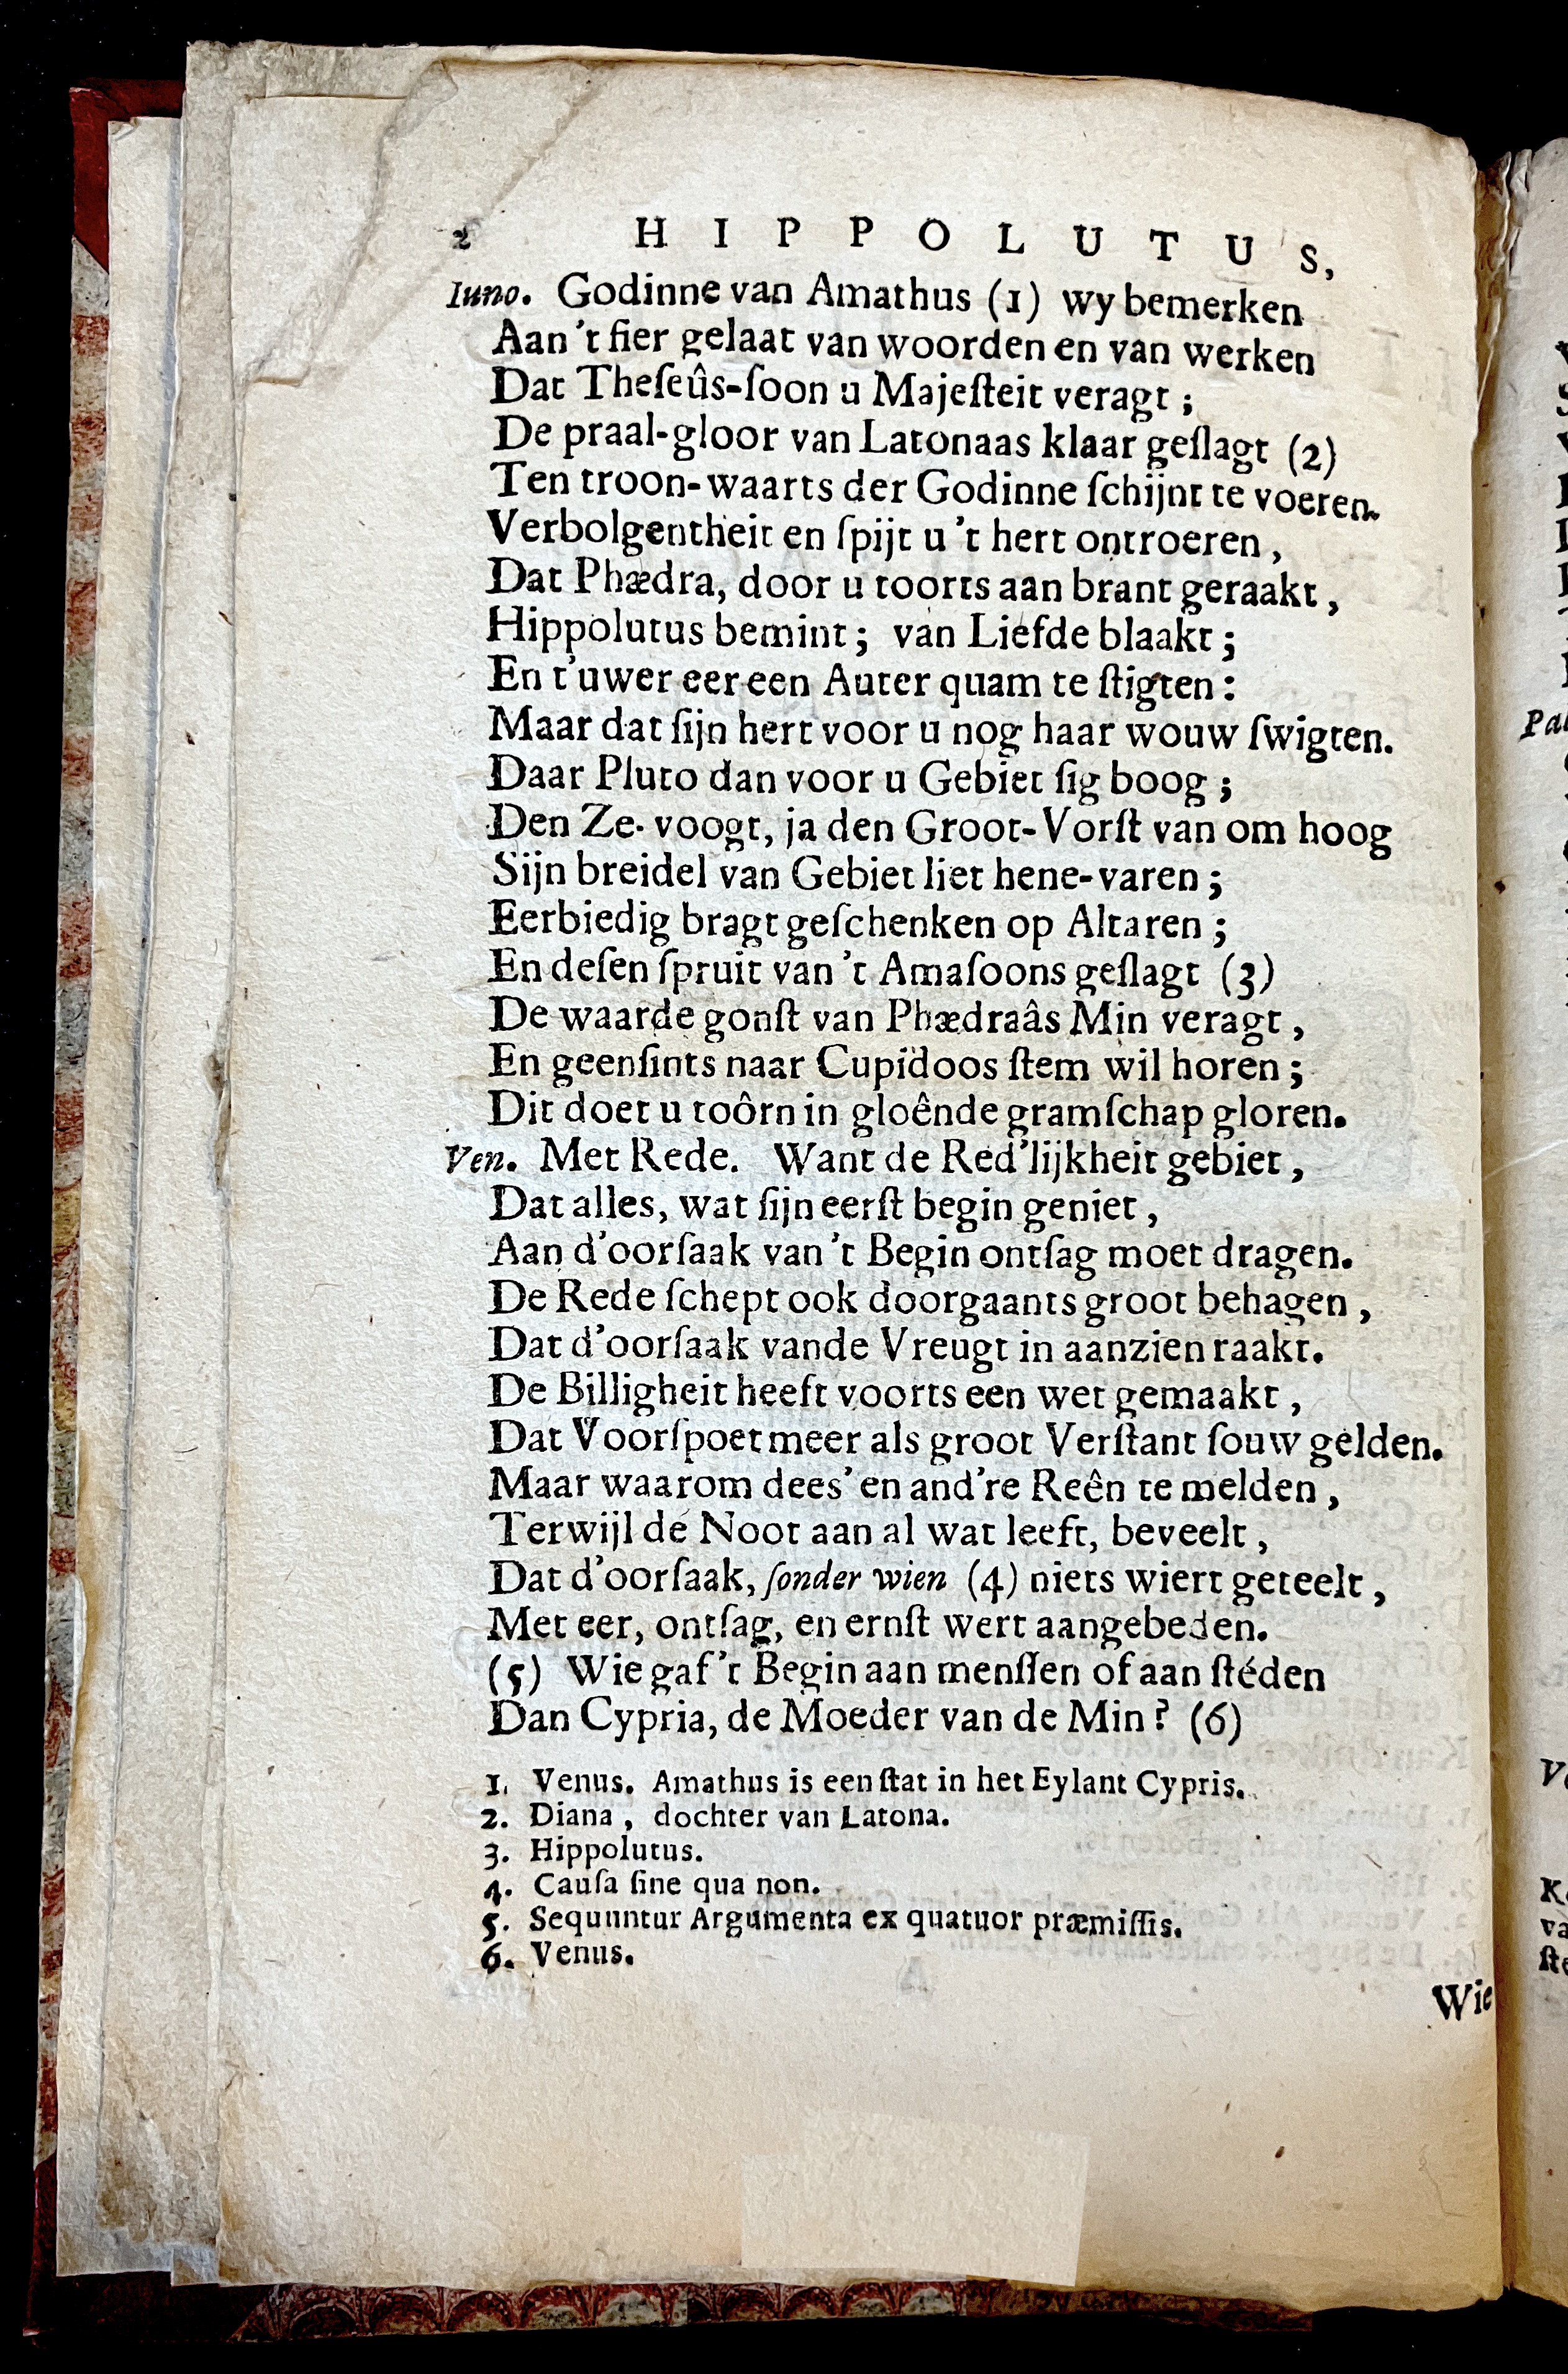 2 HIPPOLUTUS,
Iuno. Godinne van Amathus (1) wy bemerken
Aan 't fier gelaat van woorden en van werken
Dat Theſeûs-ſoon u Majeſteit veragt ;
De praal-gloor van Latonaas klaar geſlagt (2)
Ten troon-waarts der Godinne ſchijnt te voeren.
Verbolgentheit en ſpijt u 't hert ontroeren ,
Dat Phædra, door u toorts aan brant geraakt ,
Hippolutus bemint ; van Liefde blaakt ;
En t'uwer eer een Auter quam te ſtigten :
Maar dat ſijn hert voor u nog haar wouw ſwigten.
Daar Pluto dan voor u Gebiet ſig boog ;
Den Ze-voogt, ja den Groot-Vorſt van om hoog
Sijn breidel van Gebiet liet hene-varen ;
Eerbiedig bragt geſchenken op Altaren ;
En deſen ſpruit van 't Amaſoons geſlagt (3)
De waarde gonſt van Phædraâs Min veragt ,
En geenſints naar Cupidoos ſtem wil horen ;
Dit doet u toôrn in gloênde gramſchap gloren.
Ven. Met Rede. Want de Red'lijkheit gebiet ,
Dat alles, wat ſijn eerſt begin geniet ,
Aan d'oorſaak van 't Begin ontſag moet dragen.
De Rede ſchept ook doorgaants groot behagen ,
Dat d'oorſaak vande Vreugt in aanzien raakt.
De Billigheit heeft voorts een wet gemaakt ,
Dat Voorſpoet meer als groot Verſtant ſouw gelden.
Maar waarom dees' en and're Reên te melden ,
Terwijl de Noot aan al wat leeft, beveelt ,
Dat d'oorſaak, ſonder wien (4) niets wiert geteelt ,
Met eer, ontſag, en ernſt wert aangebeden.
(5) Wie gaf 't Begin aan menſſen of aan ſtéden
Dan Cypria, de Moeder van de Min ? (6)
1. Venus. Amathus is een ſtat in het Eylant Cypris.
2. Diana , dochter van Latona.
3. Hippolutus.
4. Cauſa ſine qua non.
5. Sequuntur Argumenta ex quatuor præmiſſis.
6. Venus.
Wie